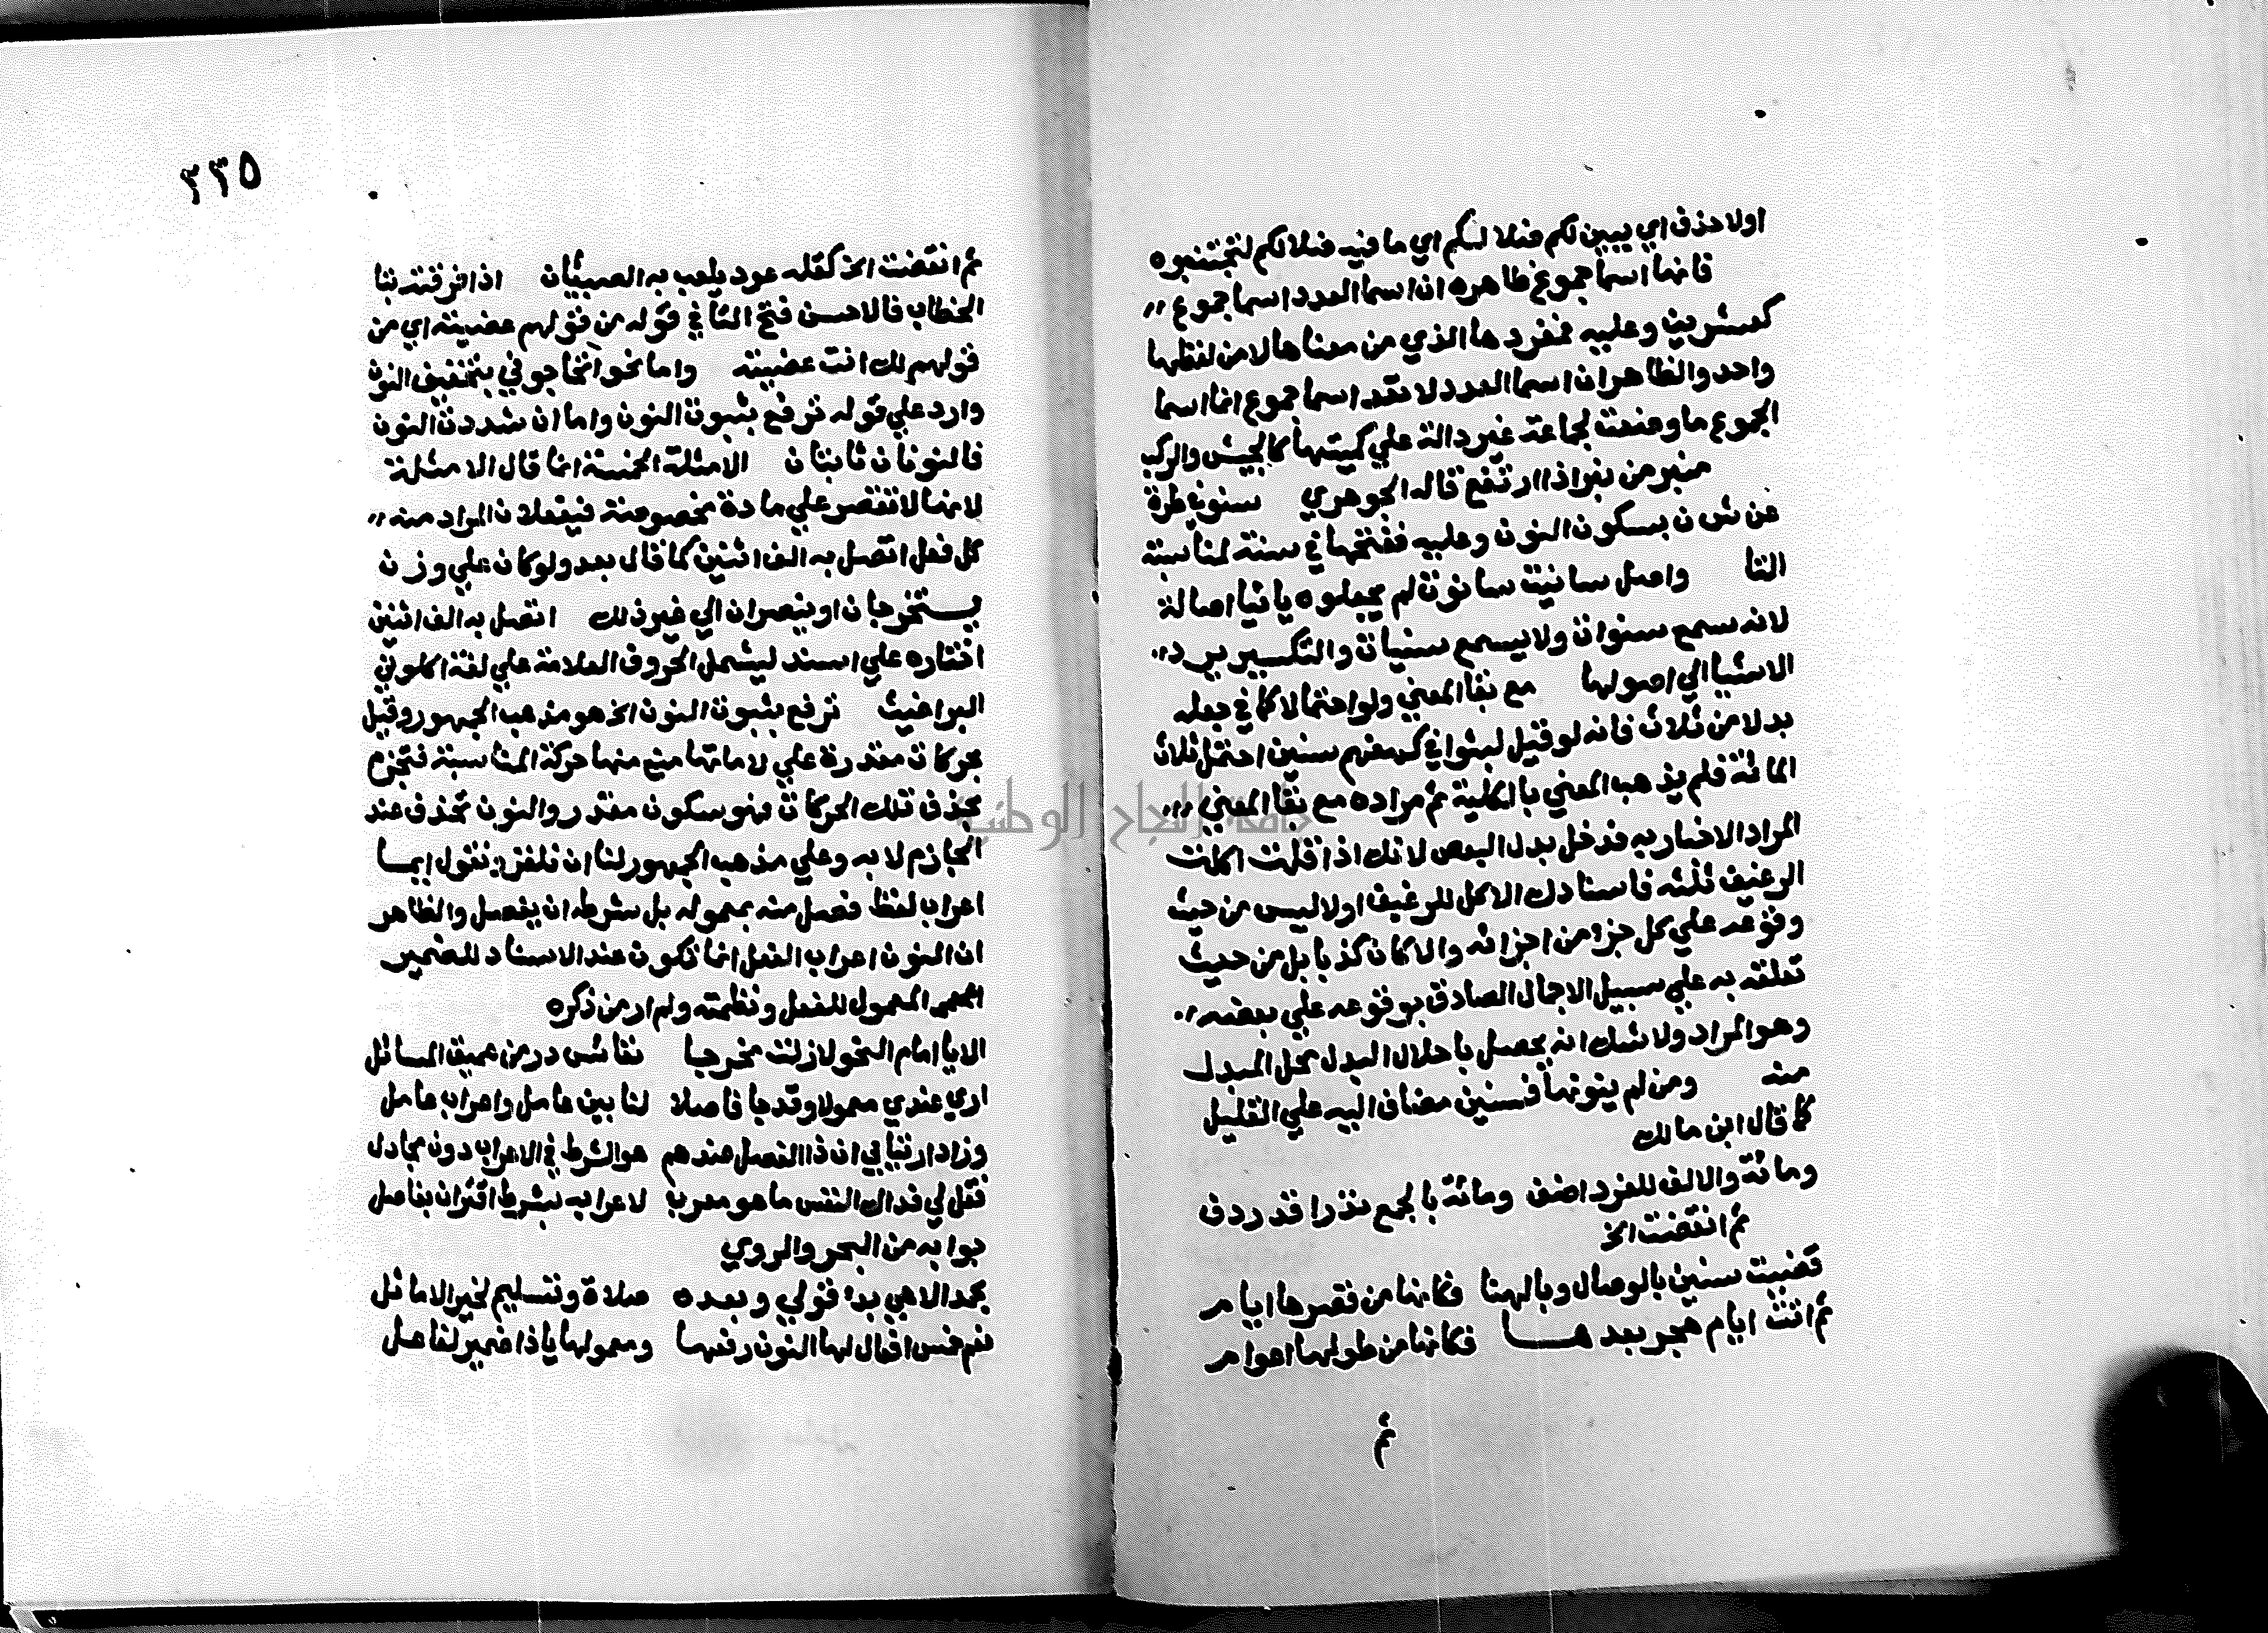 اولا حذف اي يبين لكم ضلالكم اي ما فيه ضلالكم لتجتنبوه
فانها اسما جموع ظاهره ان اسما العدد اسما جموع
كعشرين وعليه فمفردها الذي من معناها لا من لفظها
واحد والظاهر ان اسما العدد لا تعد اسما جموع انما اسما
الجموع ما وضعت لجماعة غير دالة علي كميتها كالجيش والركب
منبر من نبر اذا ارتفع قاله الجوهري سنون
بسكون النون وعليه ففتحها في سنة لمناسبة
التا واصل سانيت سانوت لم يجعلوه يائيا اصالة
لانه سمع سنوات ولا يسمع سنيات والتكسير يرد
الاشيا الي اصولها مع بقا المعني ولو احتمالا كما في جعله
بدلا من ثلاث فانه لو قيل لبثوا في كهفهم سنين احتمل ثلاث
المائة فلم يذهب المعني بالكلية ثم مراده مع بقا المعني
المراد الاخبار به فدخل بدل البعض لانك اذا قلت اكلت
الرغيف ثلثه فاسنادك الاكل للرغيف اولا ليس من حيث
وقوعه علي كل جزء من اجزائه والا كان كذبا بل من حيث
تعلقه به علي سبيل الاجمال الصادق بوقوعه علي بعضه
وهو المراد ولا شك انه يحصل باحلال البدل محل المبدل
منه ومن لم ينونها فسنين مضاف اليه علي القليل
كما قال ابن مالك
ومائة والالف للفرد اضف ومائة بالجمع نذرا قد ردف
ثم انقضت الخ
قضيت سنين بالوصال وبالهنا فكانها من قصرها ايام
ثم انثت ايام هجر بعدها فكانها من طولها اعوام
ثم
٣٣٥
ثم انقضت الخ كقله عود يلعب به الصبيان اذا لزقته بتا
الخطاب فالاحسن فتح التا في قوله من قولهم عضيته اي من
قولهم لك انت عضيته واما نحو اتحاجوني بتخفيف النون
وارد علي قوله ترفع بثبوت النون واما ان شددت النون
فالنونان ثابتان الامثلة الخمسة انما قال الامثلة
لانها لا تقتصر علي مادة مخصوصة فيفعلان المراد منه
كل فعل اتصل به الف اثنين كما قال بعد ولو كان علي وزن
يستخرجان او ينصران الي غير ذلك اتصل به الف اثنين
اختاره علي اسند ليشمل الحروف العلامة علي لغة اكلوني
البراغيث ترفع بثبوت النون الخ هو مذهب الجمهور وقيل
بحركات مقدرة علي لاماتها منع منها حركة المناسبة فتجزم
بحذف تلك الحركات فهو سكون مقدر والنون تحذف عند
الجازم لا به وعلي مذهب الجمهور لنا ان نلغز فنقول ايما
اعراب لفظ فصل منه بمعموله بل شرطه ان يفصل والظاهر
ان النون اعراب الفعل انما تكون عند الاسناد للضمير
المعمول للفعل ونظمته ولم ار من ذكره
الا يا امام النحو لا زلت مخرجا نفائس در من عميق المسائل
اري عندي معمولا وقد جا فاصلا لنا بين عامل واعراب عامل
وزاد ارتيابي ان ذا الفصل عندهم هو الشرط في الاعراب دون مجادل
فقل لي فداك النفس ما هو معرب لاعرابه شرط اقتران بفاصل
جوابه من البحر والروي
بحمد الاهي بدء قولي وبعده صلاة وتسليم لخير الاماثل
نعم خمس افعال لها النون رفعها ومعمولها يا ذا ضمير لفاعل